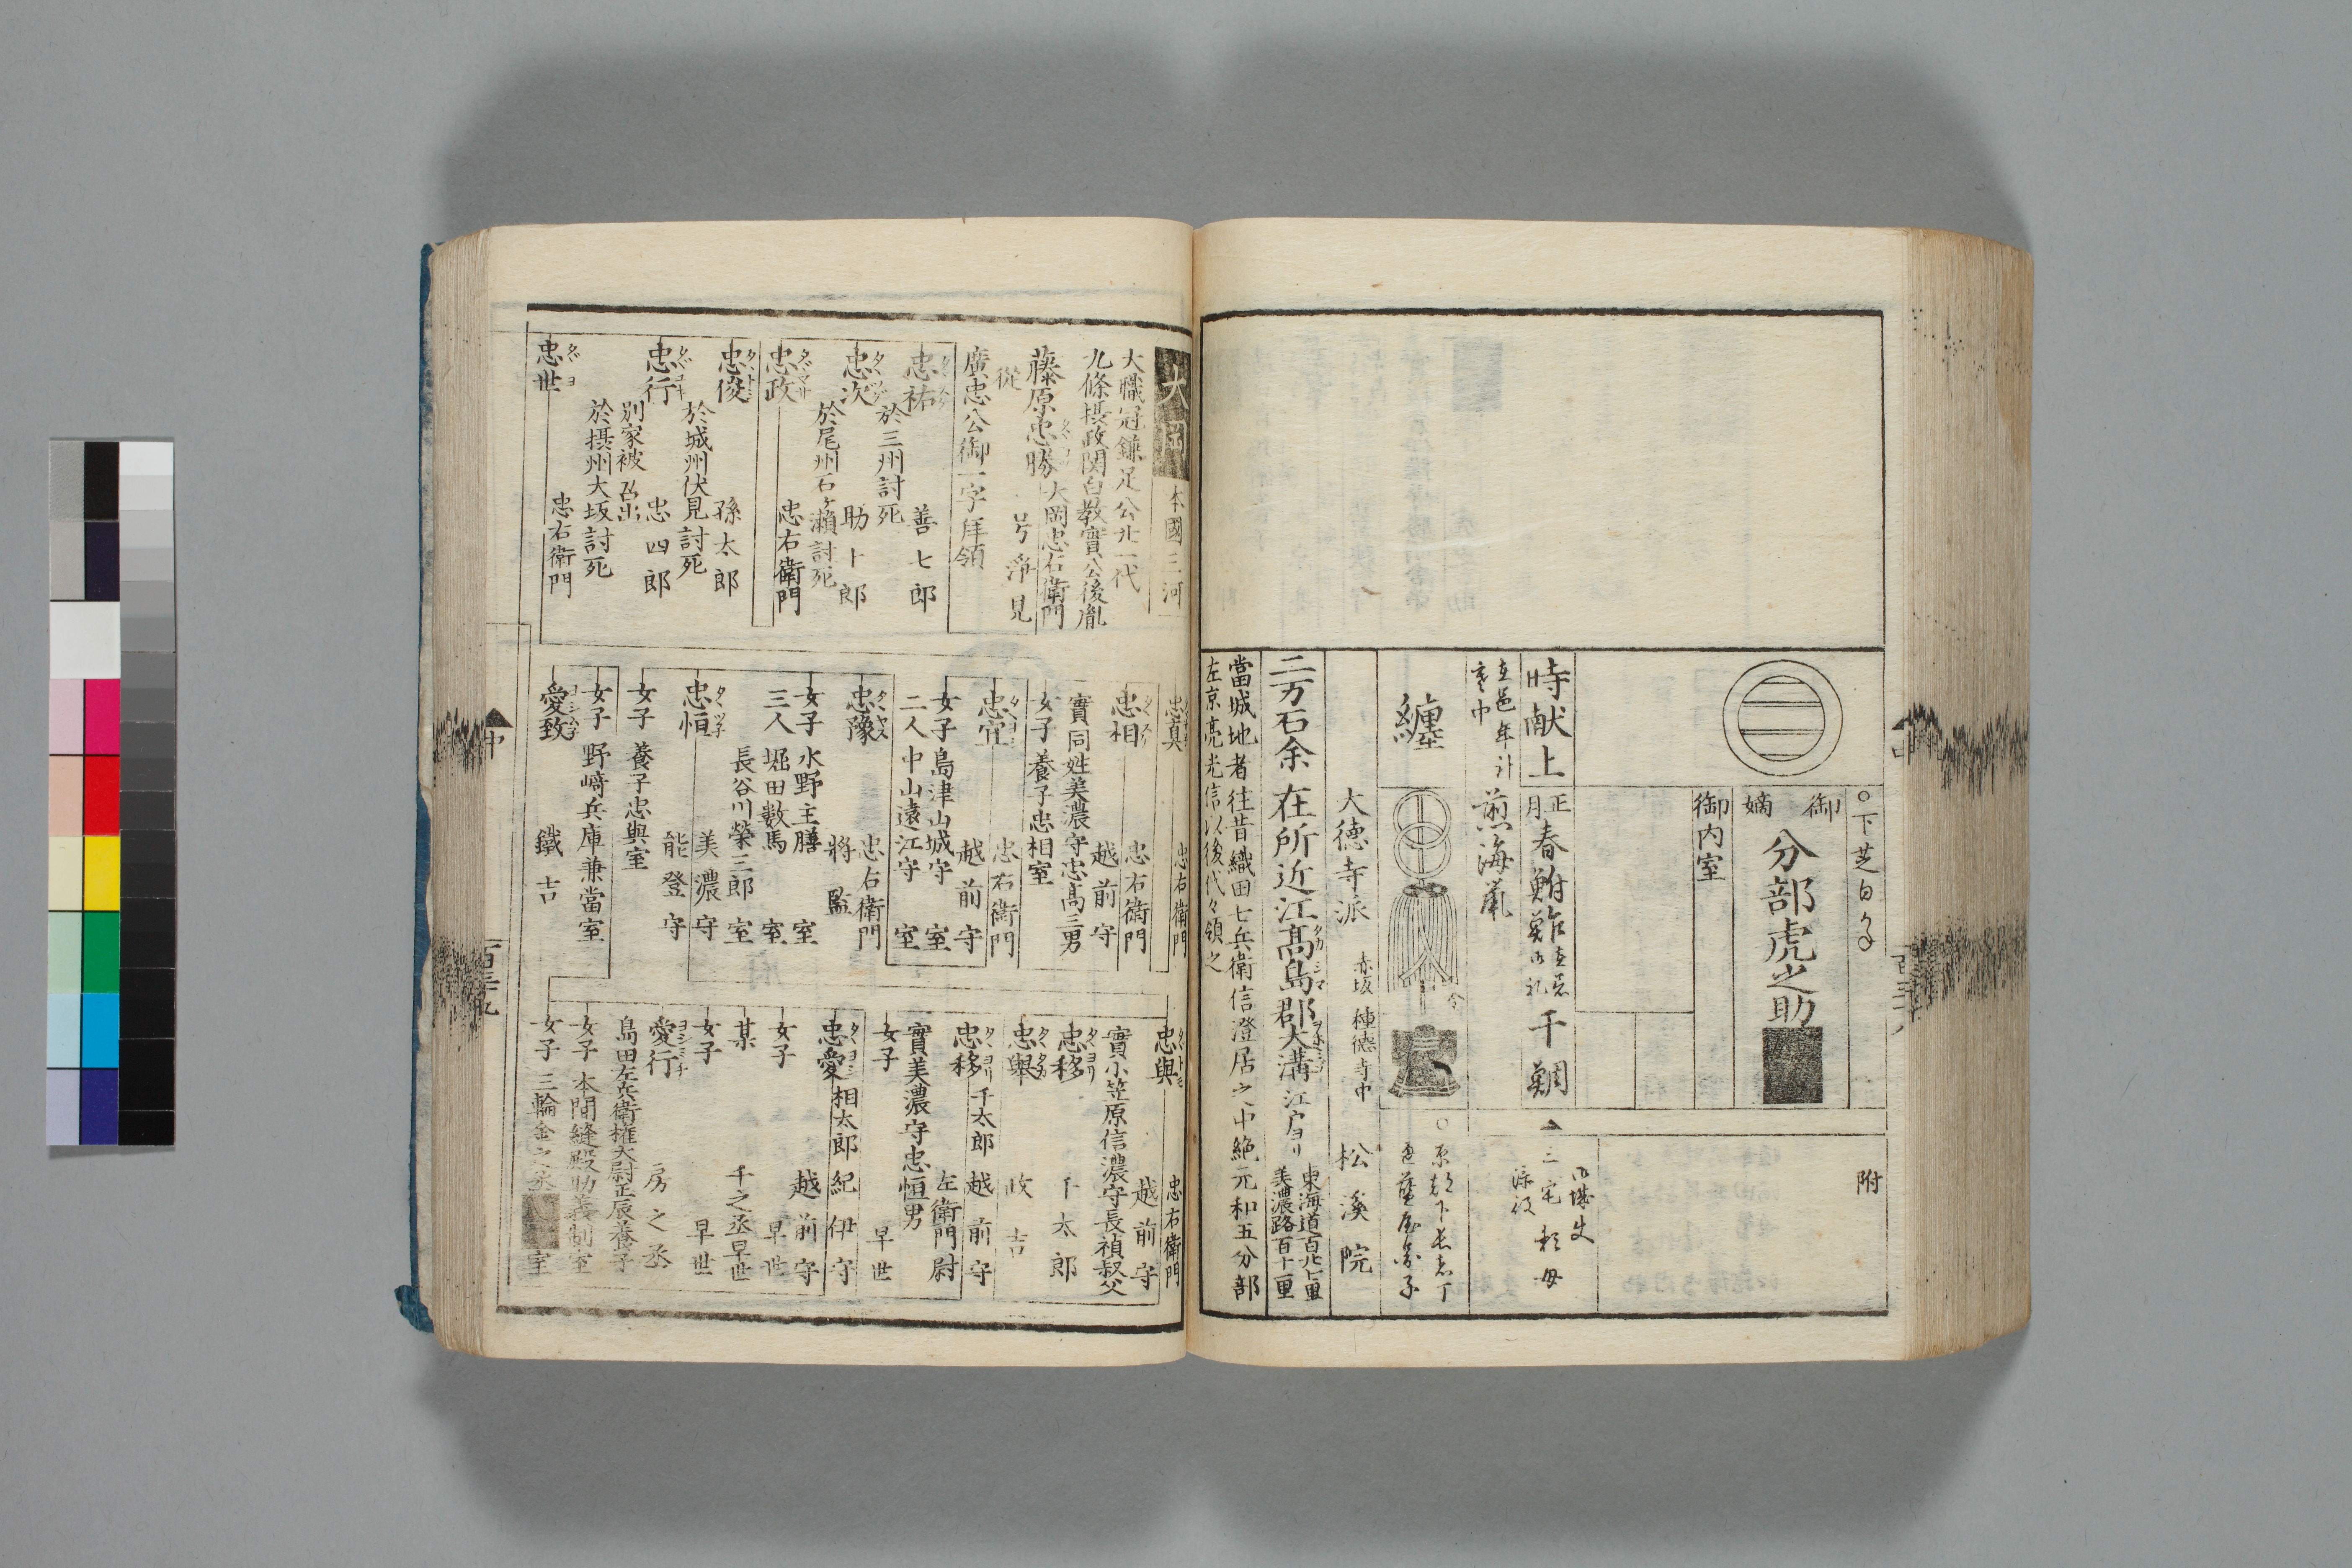 附
○下芝
御嫡
分部虎之助
御内室
時献上
正月
春鮒鮓
干鯛
在邑年計
寒中
煎海鼠
三宅
纏
大徳寺派
赤坂
種徳寺中
松溪院
二万石余
在所近江高島郡大溝
タカシマ
江戸ヨリ
東海道百廿七里
美濃路百十里
當城地者往昔織田七兵衛信澄居之中絶元和五分部
左京亮光信以後代々領之
大岡
本國三河
大職冠鎌足公廿一代
九條摂政関白教實公後胤
藤原忠勝
大岡忠右衛門
従
号浄見
廣忠公御一字拝領
忠祐
善七郎
於三州討死
忠次
助十郎
於尾州石ヶ瀬討死
忠政
忠右衛門
忠俊
孫太郎
於城州伏見討死
忠行
忠四郎
別家被召出
於摂州大坂討死
忠世
忠右衛門
忠真
忠右衛門
忠相
忠右衛門
越前守
實同姓美濃守忠高三男
女子
養子忠相室
忠宜
忠右衛門
越前守
女子
二人
島津山城守室
中山遠江守室
忠豫
忠右衛門
將監
女子
三人
水野主膳室
堀田數馬室
長谷川榮三郎室
忠恒
美濃守
能登守
女子
養子忠與室
女子
野﨑兵庫兼當室
愛致
鐵吉
忠與
忠右衛門
越前守
實小笠原信濃守長禎叔父
忠移
千太郎
忠與
政吉
忠移
千太郎
越前守
左衛門尉
實美濃守忠恒男
女子
早世
忠愛
相太郎
紀伊守
越前守
女子
早世
某
千之丞早世
女子
早世
愛行
房之丞
島田左兵衛権大尉正辰養子
女子
本間縫殿助義制室
女子
三輪金之丞
室
中
百三十九